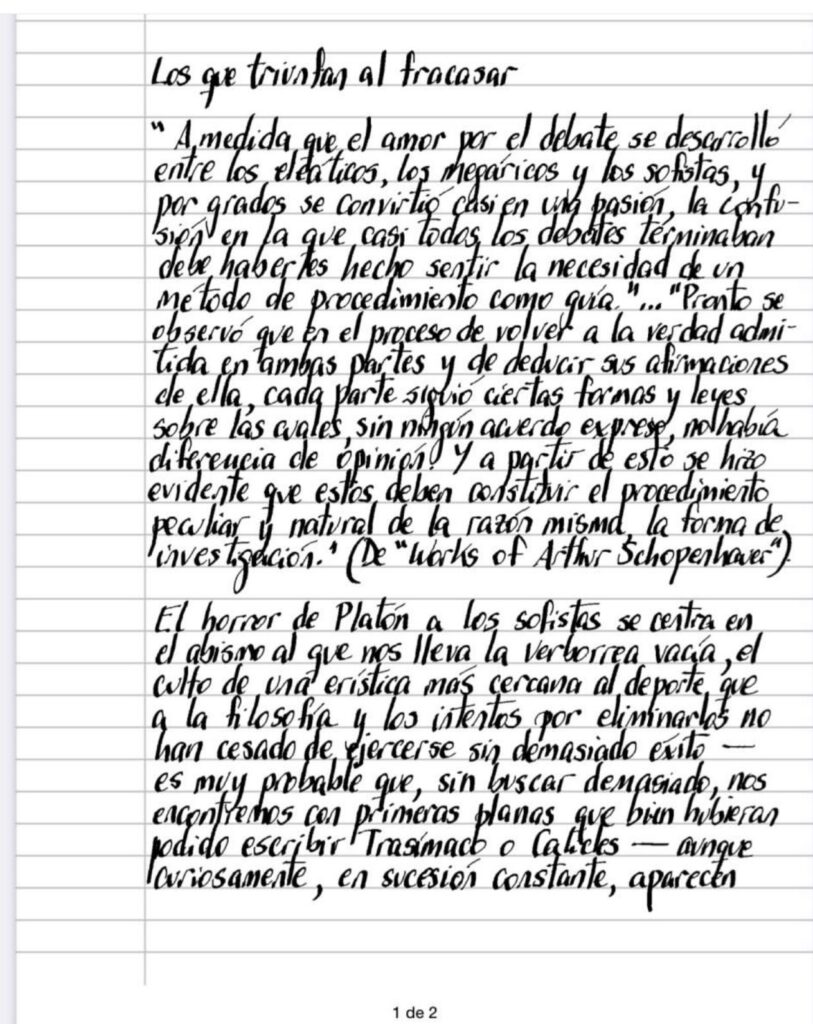 Los que triunfan al fracasar
"A medida que el amor por el debate se desarrolló
entre los eleáticos, los megáricos y los sofistas, y
por grados se convirtió casi en una pasión, la confu-
sión en la que casi todos los debates terminaban
debe haberles hecho sentir la necesidad de un
método de procedimiento como guía."..."Pronto se
observó que en el proceso de volver a la verdad admi-
tida en ambas partes y de deducir sus afirmaciones
de ella, cada parte siguió ciertas formas y leyes
sobre las cuales, sin ningún acuerdo expreso, no había
diferencia de opinión. Y a partir de esto se hizo
evidente que estos deben constituir el procedimiento
peculiar y natural de la razón misma, la forma de
investigación." (De "Works of Arthur Schopenhauer")
El horror de Platón a los sofistas se centra en
el abismo al que nos lleva la verborrea vacía, el
culto de una erística más cercana al deporte que
a la filosofía y los intentos por eliminarlos no
han cesado de ejercerse sin demasiado éxito —
es muy probable que, sin buscar demasiado, nos
encontremos con primeras planas que bien hubieran
podido escribir Trasímaco o Calicles — aunque
curiosamente, en sucesión constante, aparecen
1 de 2